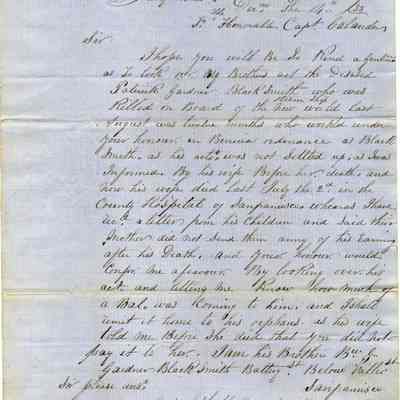 Decm The 14th 1853
To Honorable Capt Calender
Sir
I hope you will Be So Kind a Gentleman
as To look over My Brothers act the Deceased
Patrick Gardner Black Smith who was
Killed on Board of the New world Last
steam ship
August was twelve months who worked under
your honour in Benicia ordinance as Black
Smith. as his acts was not Setled up, as I was
Informed By his wife Before her death, and
now his wife died Last July the 2d in the
County Hospital of Sanfrancisco whereas I have
a letter from his Children and Said their
Mother did not Send them anny of his Earning
after his Death, and your honour would
Confer me afavour By looking over his
act and letting me Know how much of
a Bal. was Coming to him, and I shall
remit it home to his orphans as his wife
told me Before She died that you did not
pay it to her. I am his Brother
Gardner Black Smith Battry St Below Vallejo St
Sir please ans
Sanfrancisco